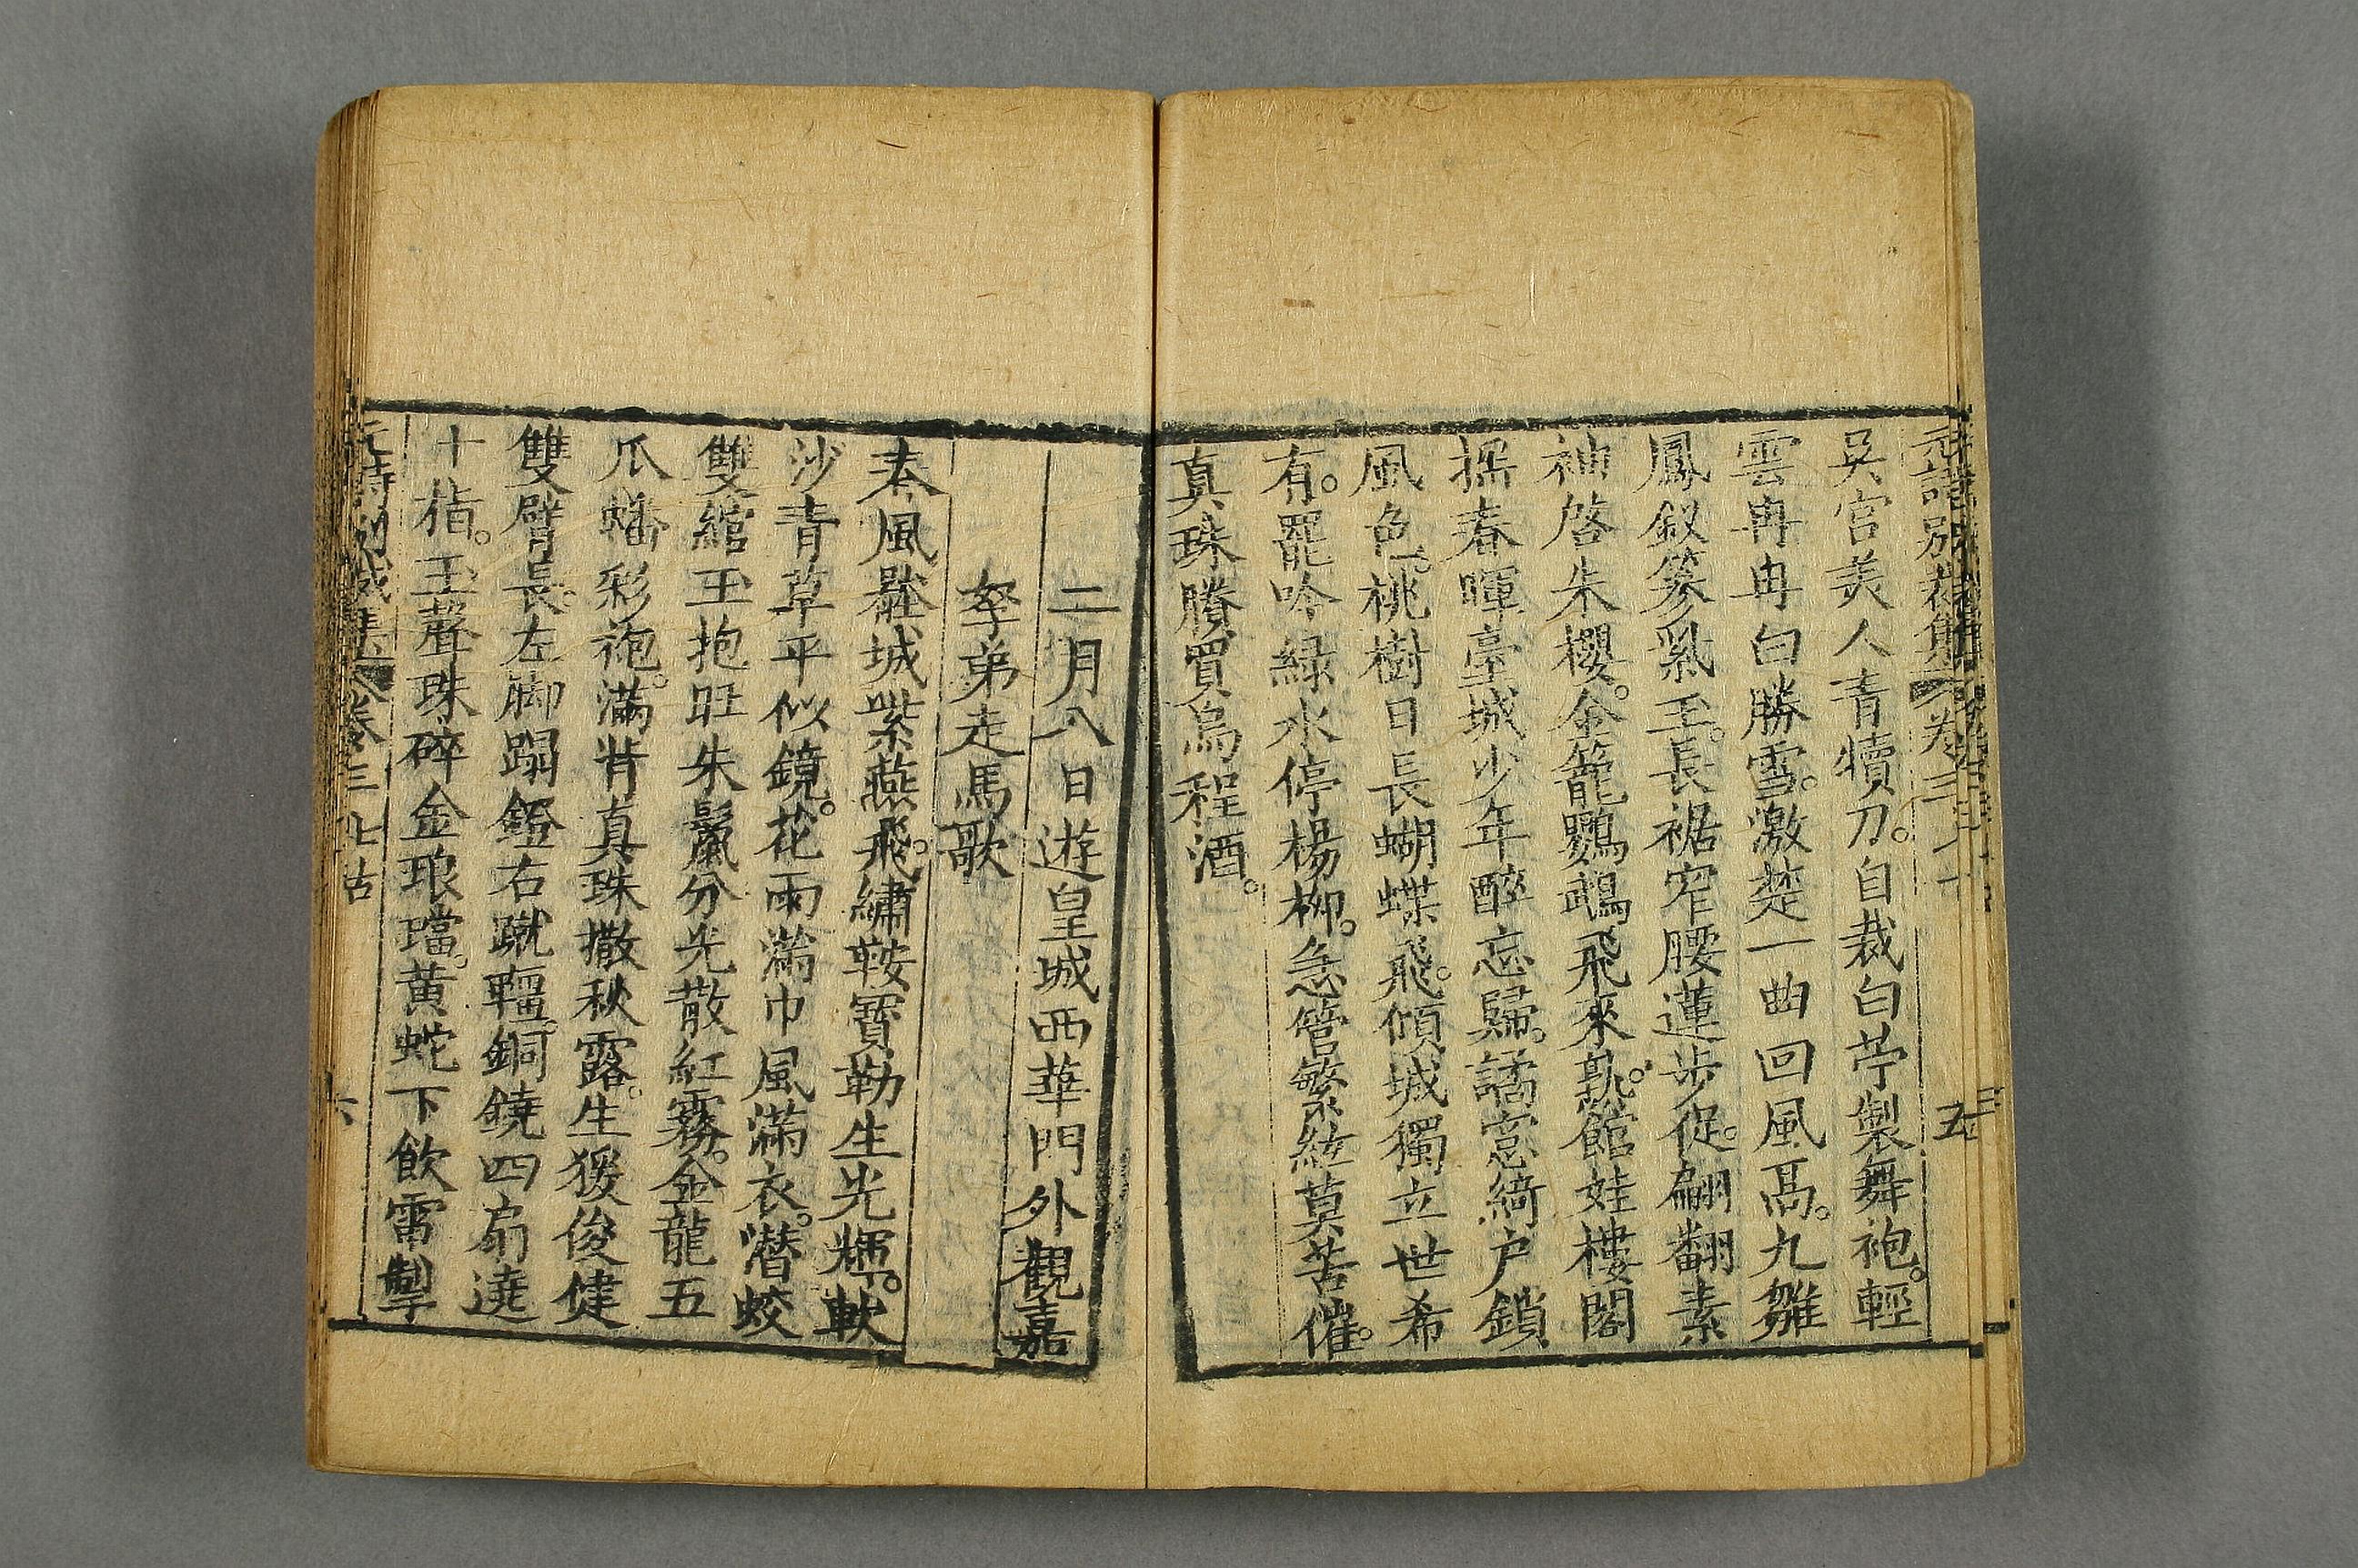 元詩別裁集 卷三 七古 五
吳宮美人青犢刀。自裁白苧製舞袍。輕
雲冉冉白勝雪。激楚一曲回風高。九雛
鳳釵篸紫玉。長裾窄腰蓮步促。翩翻素
袖啓朱櫻。金籠鸚鵡飛來熟。館娃樓閣
搖春暉。臺城少年醉忘歸。譎窓綺户鎖
風色。桃樹日長蝴蝶飛。傾城獨立世希
有。罷吟綠水停楊柳。急管繁絃莫苦催。
真珠賸買烏程酒。
二月八日遊皇城西華門外觀嘉
孥弟走馬歌
春風蹴城紫燕飛。繡鞍寶勒生光輝。軟
沙青草平似鏡。花雨滿巾風滿衣。潛蛟
雙綰玉抱肚。朱鬣分光散紅霧。金龍五
爪蟠彩袍。滿背真珠撒秋露。生猨俊健
雙臂長。左脚蹋鐙右蹴韁。銅鐃四扇遶
十指。玉聲珠碎金琅璫。黄蛇下飲電掣
元詩別裁集 卷三 七古 六